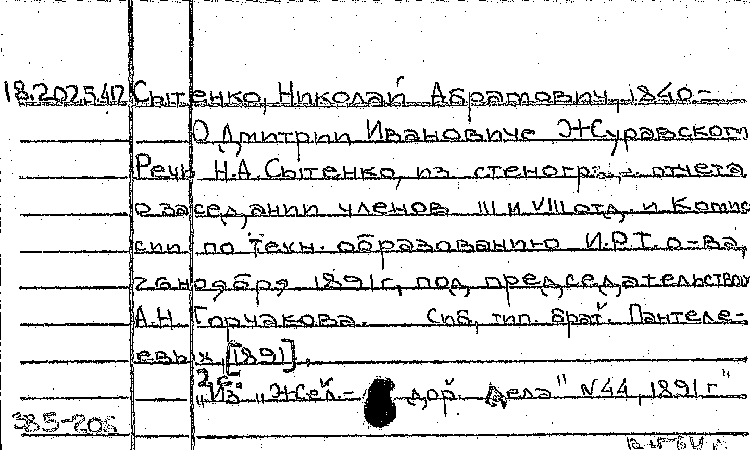 18.202.540 Сытенко, Николай Абрамович, 1840-
О Дмитрии Ивановиче Журавском
Речь Н.А. Сытенко, из стеногр. отчета
о заседании членов III и VIII отд. и Комис
сии по техн. образованию И.Р.Т. о-ва,
26 ноября 1891 г., под председательством
А.Н. Горчакова. Спб, тип. брат. Пантеле-
евых, [1891],
2 с.
"Из "Жел.- дор. дела" N44, 1891 г"
385-206